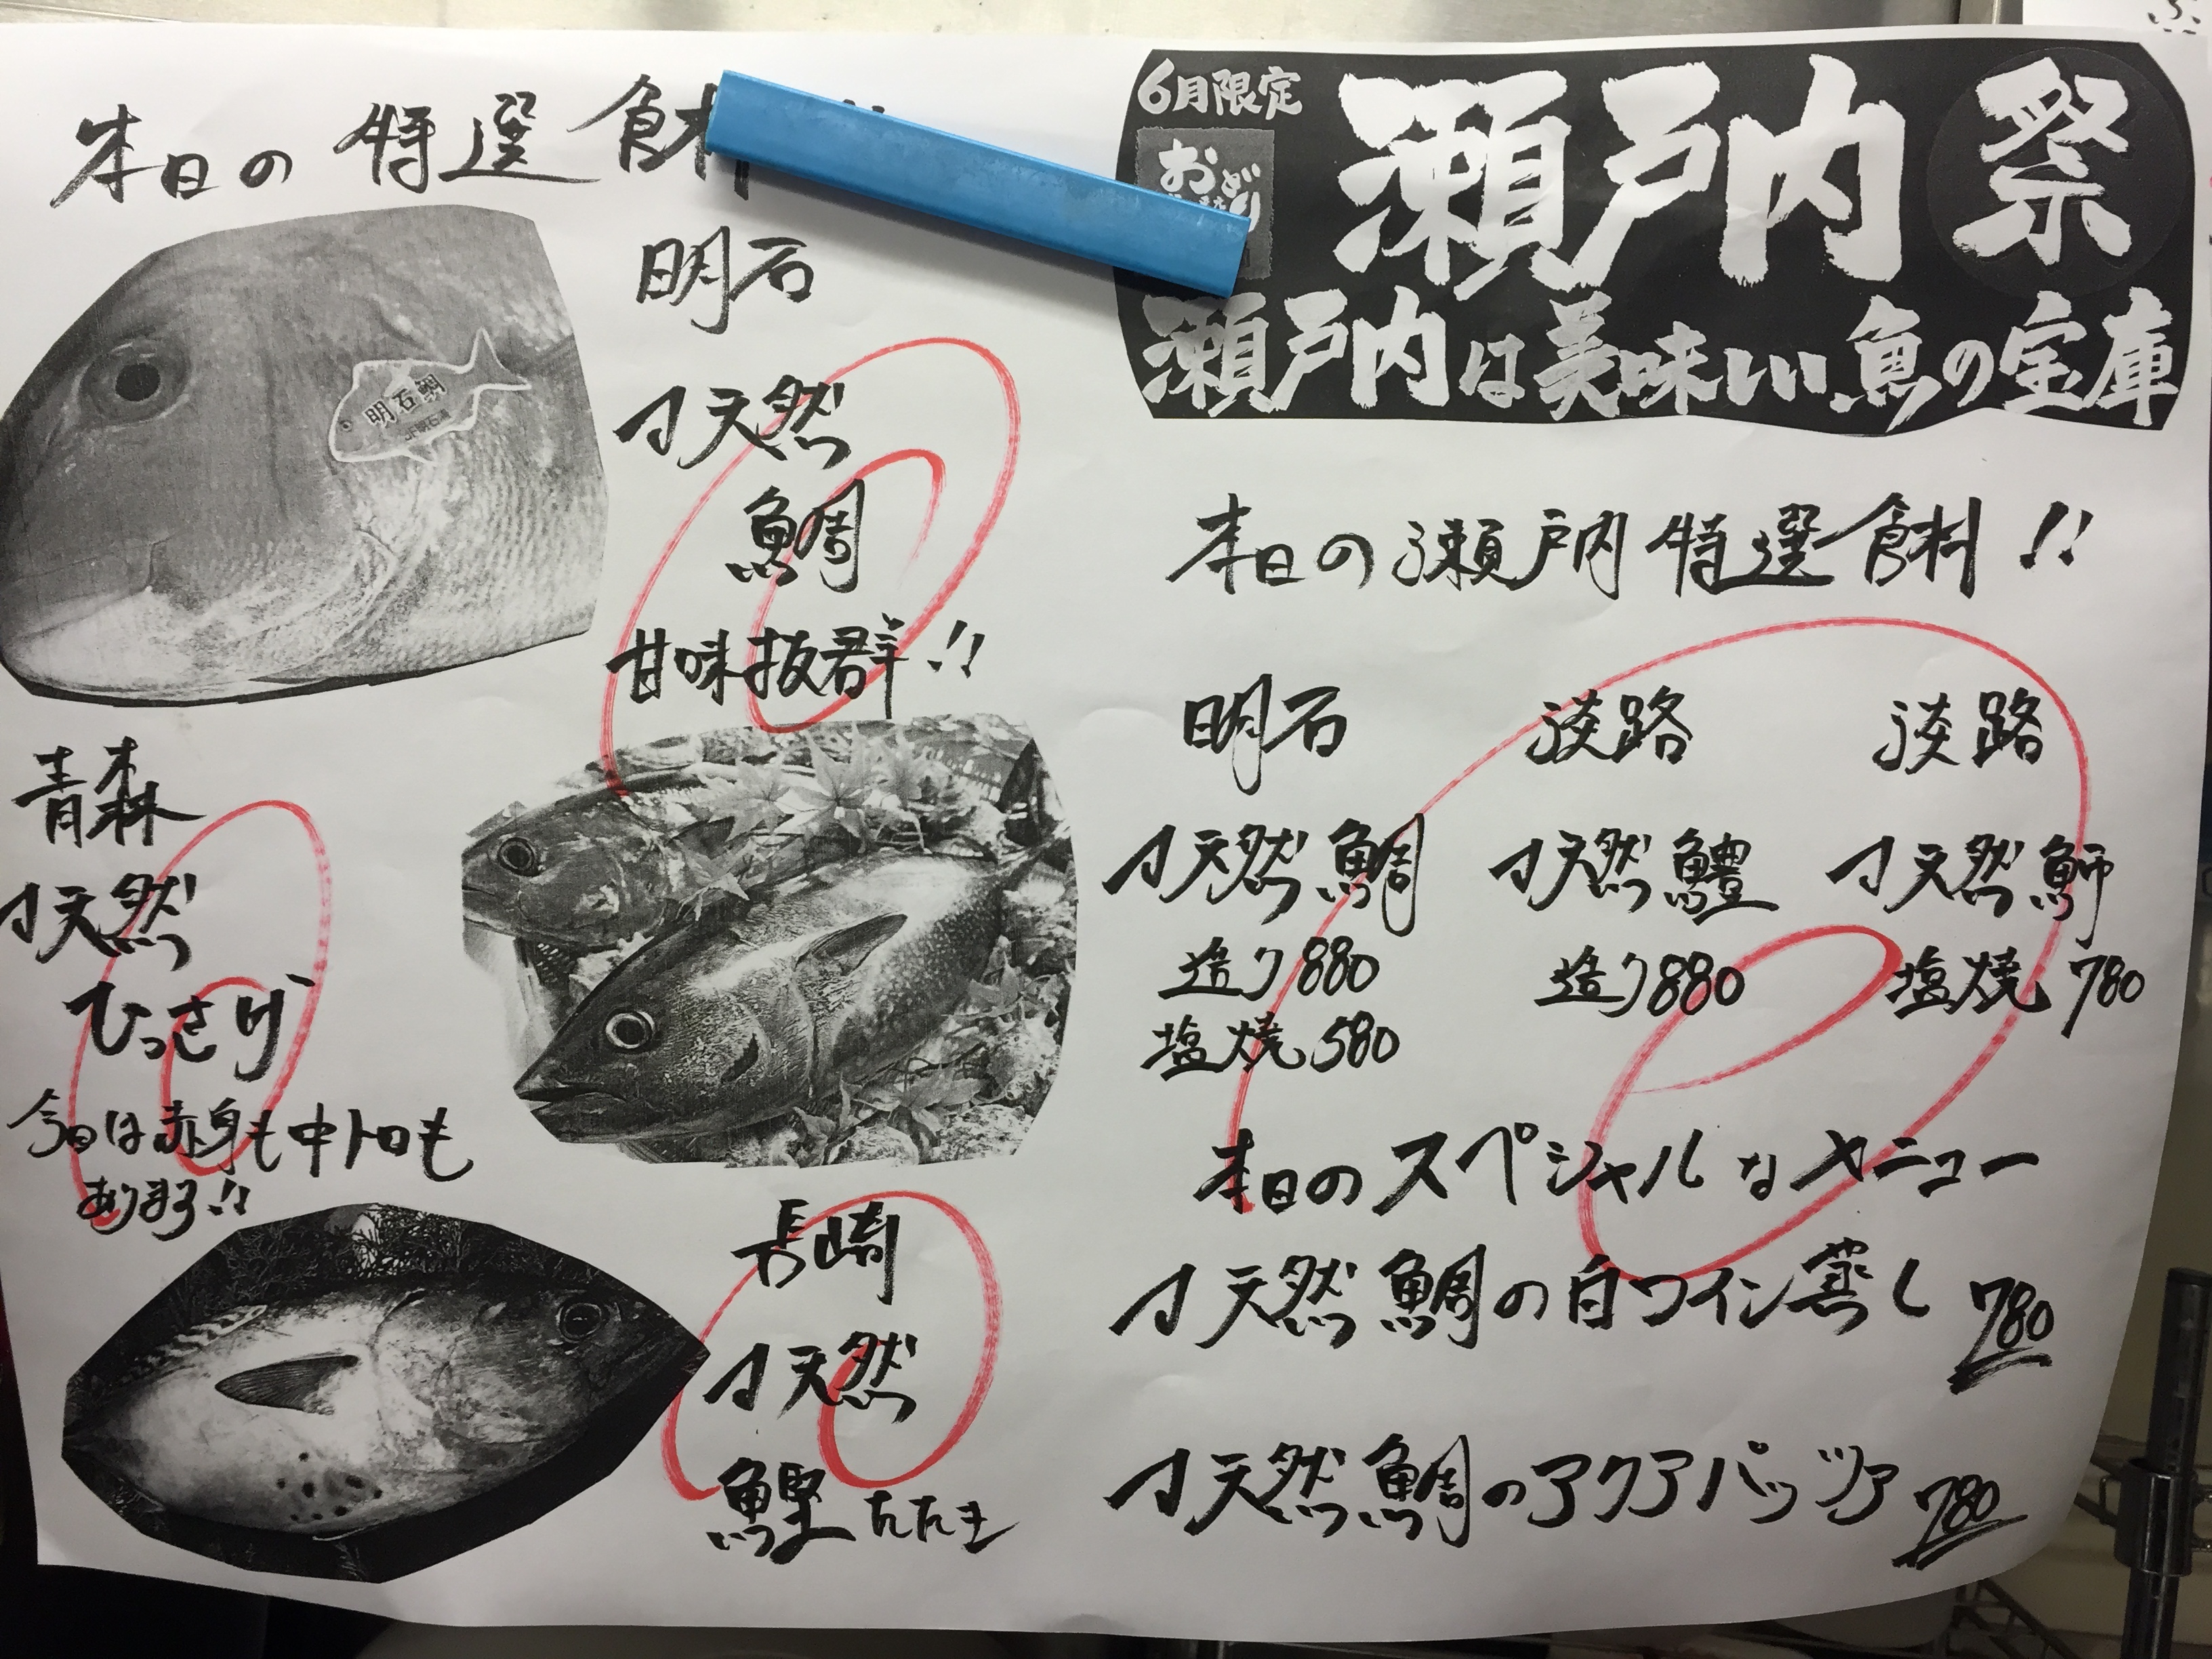 本日の特選食
明石
天然
鯛
甘味抜群!!
明石鯛
青森
天然
ひっさげ
今日は赤身も中トロも
あります!!
長崎
天然
鰹たたき
6月限定
瀬戸内祭
瀬戸内は美味しい魚の宝庫
本日の瀬戸内特選食材!!
明石 淡路 淡路
天然鯛 天然鱧 天然鰤
造り880 造り880 塩焼780
塩焼580
本日のスペシャルなメニュー
天然鯛の白ワイン蒸し 780
天然鯛のアクアパッツァ 780